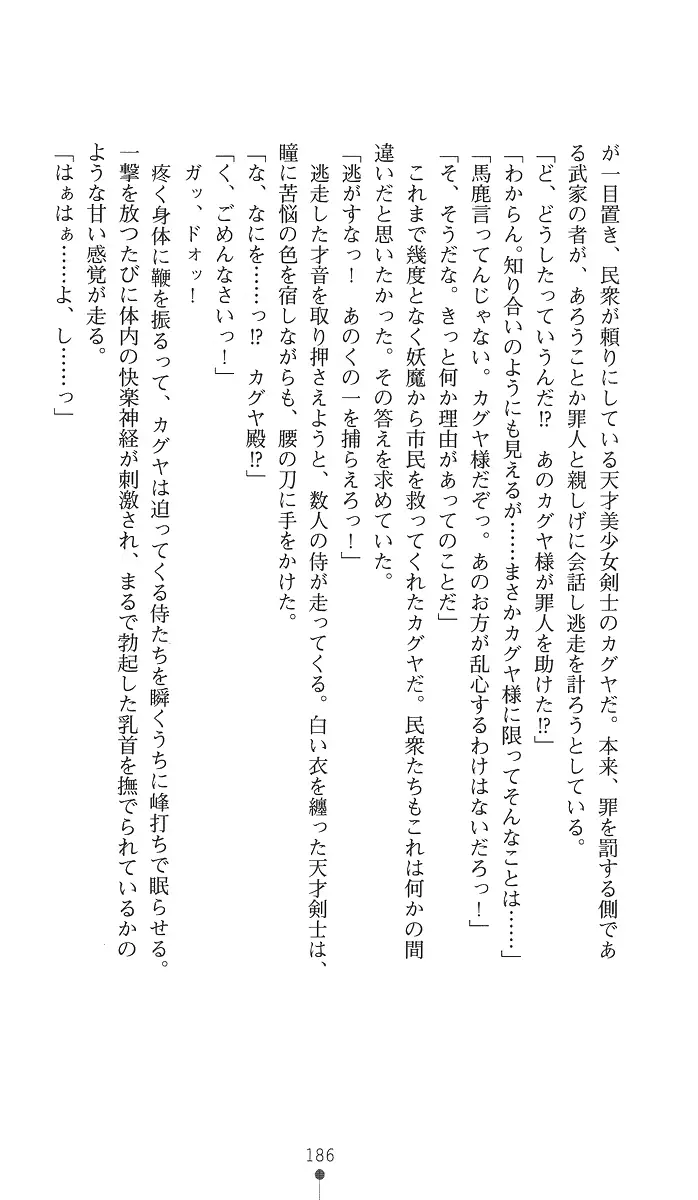 が一目置き、民衆が頼りにしている天才美少女剣士のカグヤだ。本来、罪を罰する側であ
る武家の者が、あろうことか罪人と親しげに会話し逃走を計ろうとしている。
「ど、どうしたっていうんだ!?　あのカグヤ様が罪人を助けた!?」
「わからん。知り合いのようにも見えるが……まさかカグヤ様に限ってそんなことは……」
「馬鹿言ってんじゃない。カグヤ様だぞっ。あのお方が乱心するわけはないだろっ！」
「そ、そうだな。きっと何か理由があってのことだ」
これまで幾度となく妖魔から市民を救ってくれたカグヤだ。民衆たちもこれは何かの間
違いだと思いたかった。その答えを求めていた。
「逃がすなっ！　あのくの一を捕らえろっ！」
逃走した才音を取り押さえようと、数人の侍が走ってくる。白い衣を纏った天才剣士は、
瞳に苦悩の色を宿しながらも、腰の刀に手をかけた。
「な、なにを……っ!?　カグヤ殿!?」
「く、ごめんなさいっ！」
ガッ、ドォッ！
疼く身体に鞭を振るって、カグヤは迫ってくる侍たちを瞬くうちに峰打ちで眠らせる。
一撃を放つたびに体内の快楽神経が刺激され、まるで勃起した乳首を撫でられているかの
ような甘い感覚が走る。
「はぁはぁ……よ、し……っ」
186